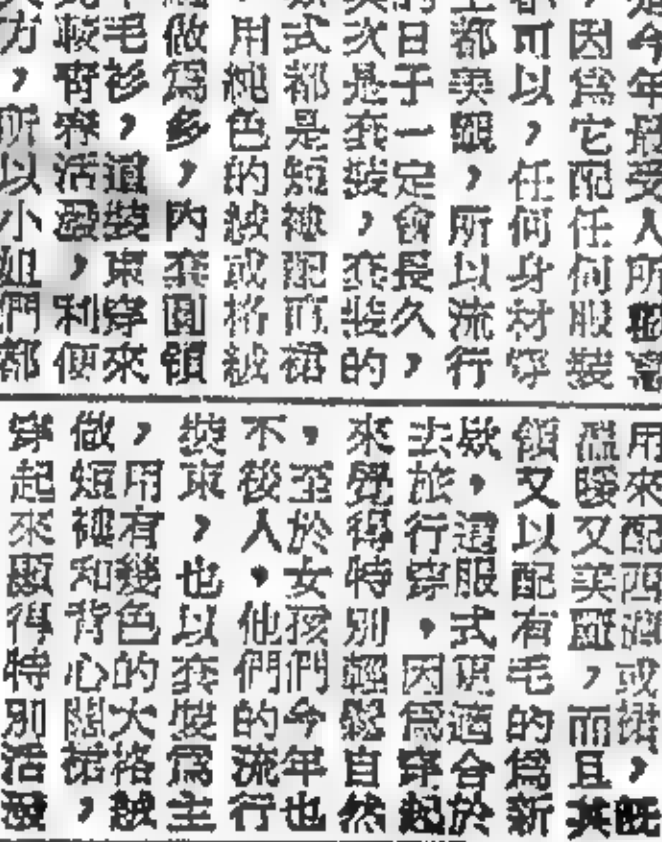 是今年最受人所歡喜
,因為它配任何服裝
都可以,任何身材穿
上都美觀,所以流行
的日子一定會長久,
其次是套裝,套裝的
式都是短褲配而裙
用純色的絨或格絨
做為多,內套圓領
毛衫,這裝束穿來
比較有活潑,利便
方,所以小姐們都
用來配西褲或裙,既
溫暖又美麗,而且其
領又以配有毛的為新
款,這服式更適合於
去旅行穿,因為穿起
來覺得特別輕鬆自然
,至於女孩們今年也
不後人,他們的流行
裝束,也以套裝為主
,用有幾色的大格絨
做短褲和背心闊裙,
穿起來顯得特別活潑